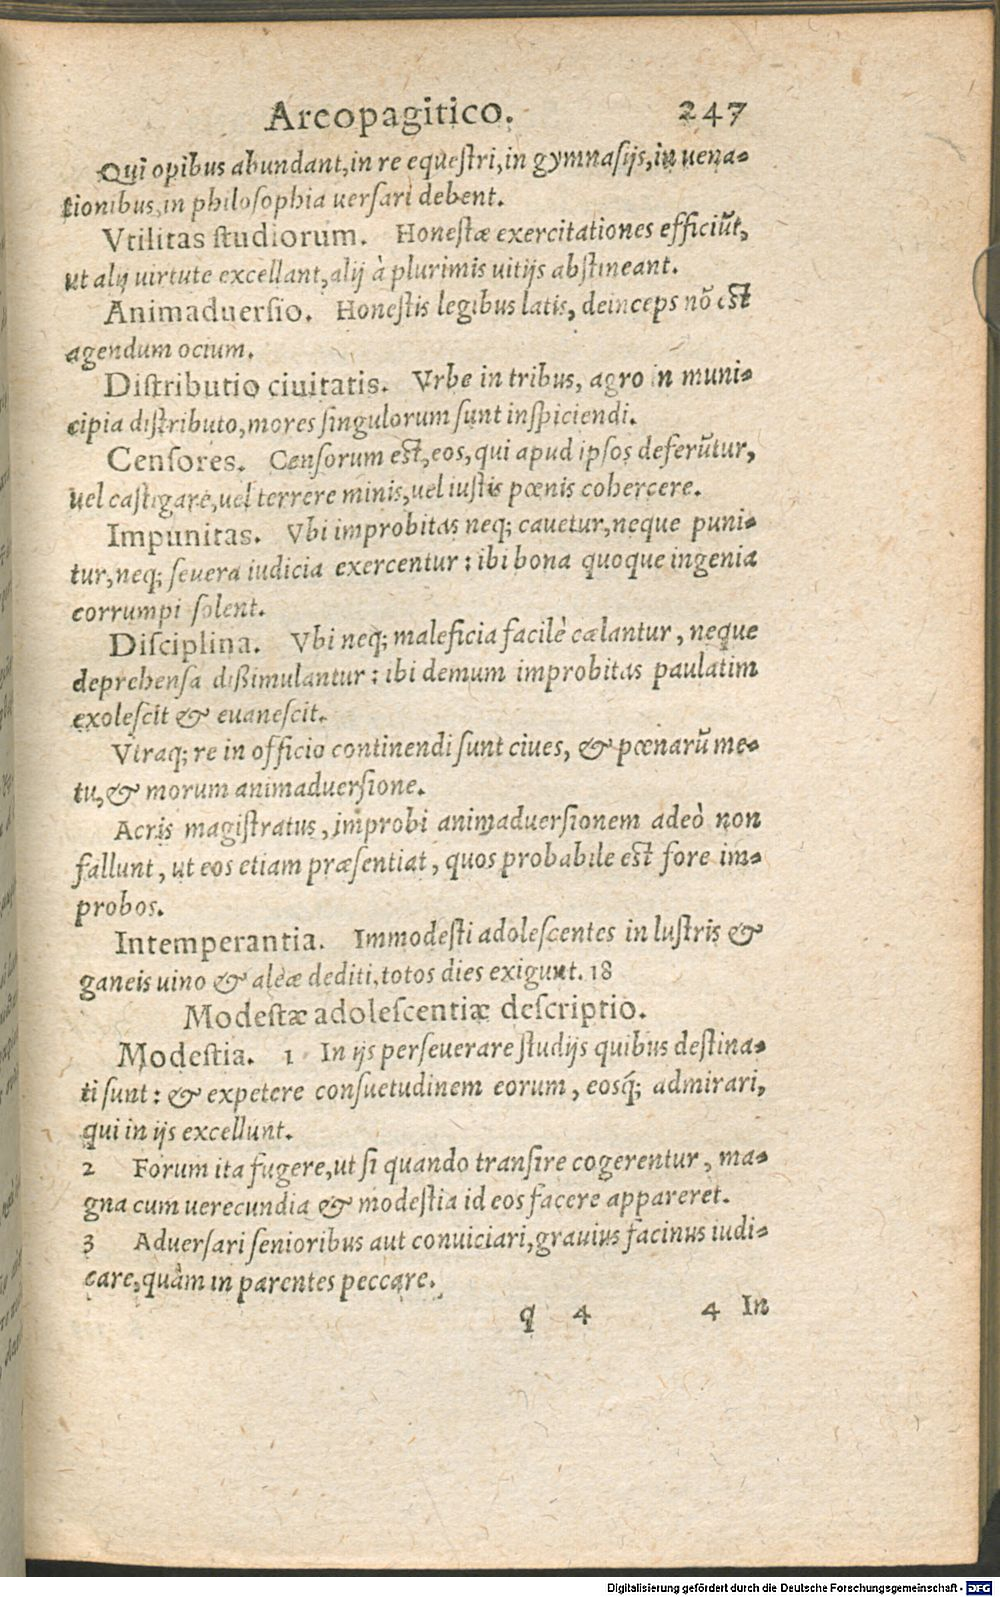 Areopagitico. 247
Qui opibus abundant, in re equeſtri, in gymnaſijs, in uena-
tionibus, in philoſophia uerſari debent.
Vtilitas ſtudiorum. Honeſtæ exercitationes efficiũt,
ut alij uirtute excellant, alij à plurimis uitijs abſtineant.
Animaduerſio. Honeſtis legibus latis, deinceps nõ eſt
agendum ocium.
Diſtributio ciuitatis. Vrbe in tribus, agro in muni-
cipia diſtributo, mores ſingulorum ſunt inſpiciendi.
Cenſores. Cenſorum eſt, eos, qui apud ipſos deferũtur,
uel caſtigare, uel terrere minis, uel iuſtis pœnis cohercere.
Impunitas. Vbi improbitas neq; cauetur, neque puni-
tur, neq; ſeuera iudicia exercentur: ibi bona quoque ingenia
corrumpi ſolent.
Diſciplina. Vbi neq; maleficia facilè cælantur, neque
deprehenſa dißimulantur: ibi demum improbitas paulatim
exoleſcit & euaneſcit.
Vtraq; re in officio continendi ſunt ciues, & pœnarũ me-
tu, & morum animaduerſione.
Acris magiſtratus, improbi animaduerſionem adeò non
fallunt, ut eos etiam præſentiat, quos probabile eſt fore im-
probos.
Intemperantia. Immodeſti adoleſcentes in luſtris &
ganeis uino & aleæ dediti, totos dies exigunt. 18
Modeſtæ adoleſcentiæ deſcriptio.
Modeſtia. 1 In ijs perſeuerare ſtudijs quibus deſtina-
ti ſunt: & expetere conſuetudinem eorum, eosq́; admirari,
qui in ijs excellunt.
2 Forum ita fugere, ut ſi quando tranſire cogerentur, ma-
gna cum uerecundia & modeſtia id eos facere appareret.
3 Aduerſari ſenioribus aut conuiciari, grauius facinus iudi-
care, quàm in parentes peccare.
q 4 4 In
Digitalisierung gefördert durch die Deutsche Forschungsgemeinschaft - DFG